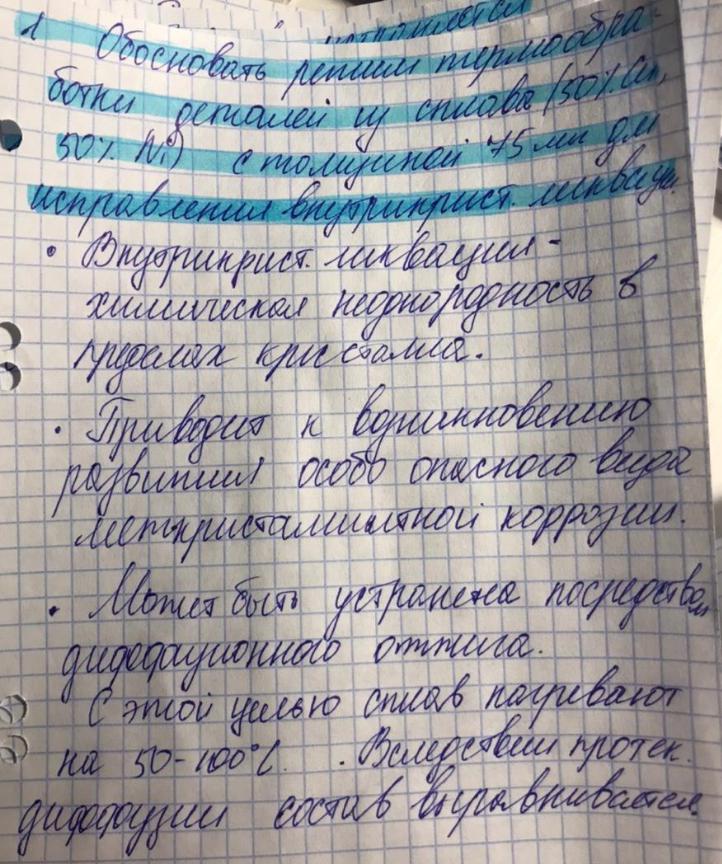 1 Обосновать режим термообра-
ботки деталей из сплава (50% Cu,
50% Ni) с толщиной 75 мм для
исправления внутрикрист. ликвации.
• Внутрикрист. ликвация -
химическая неоднородность в
пределах кристалла.
• Приводит к возникновению
развития особо опасного вида
межкристаллитной коррозии.
• Может быть устранена посредством
диффузионного отжига.
С этой целью сплав нагревают
на 50-100°C. . Вследствии протек.
диффузии состав выравнивается.